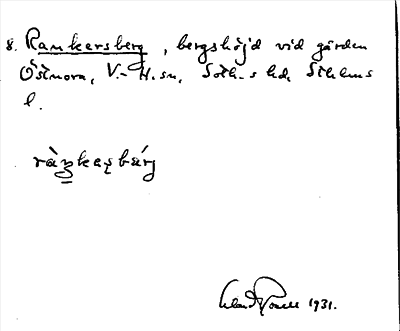 8. Rankersberg, bergshöjd vid gården
Östnora, V.-H.sn, Soth.-s hd. Sthlms
l.
1931.